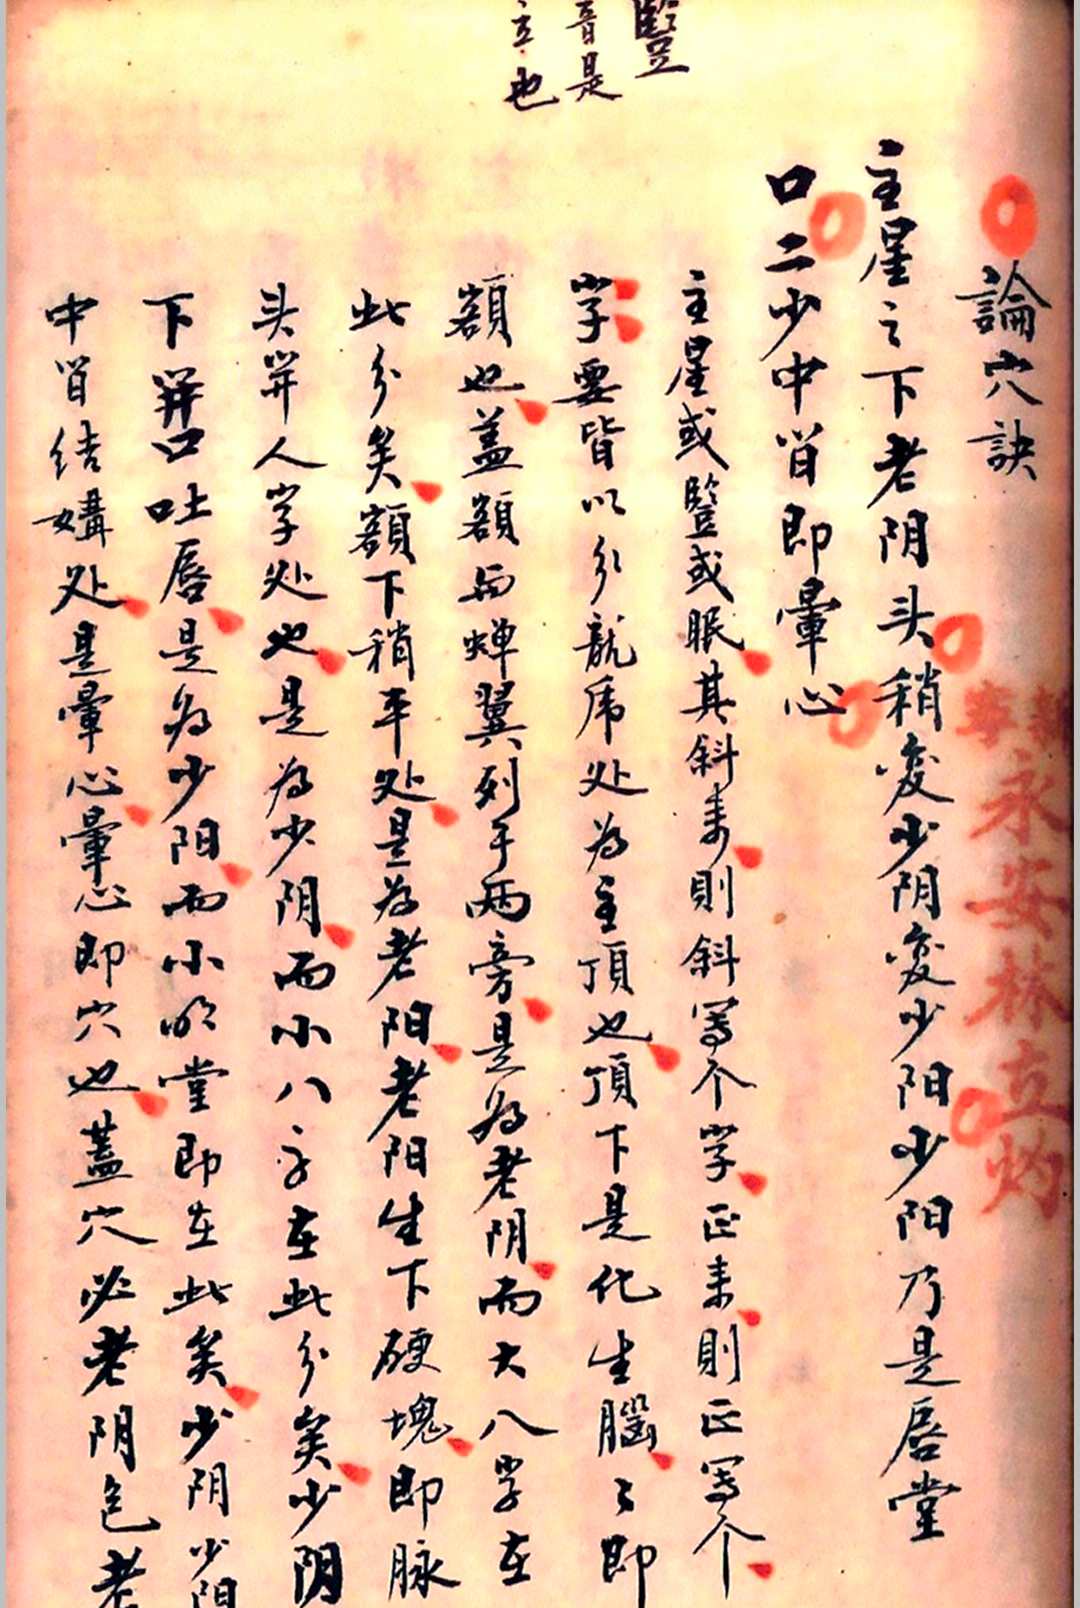 豎
音是
立也
論穴訣
主星之下老阴头稍変少阴変少阳少阳乃是唇堂
口二少中皆即暈心
主星或豎或眠其斜来則斜写个字正来則正写个
字要皆以分龍虎处为主頂也頂下是化生腦々即
額也盖額如蝉翼列于両旁是為老阴而大八字在
此分矣額下稍平处是为老阳老阳生下硬塊即脉
头开人字处也是為少阴而小八字在此分矣少阴
下开口吐唇是为少阳而小明堂即在此矣少阴少阳
中皆结媾处是暈心暈心即穴也蓋穴必老阴包老
永安林立灼